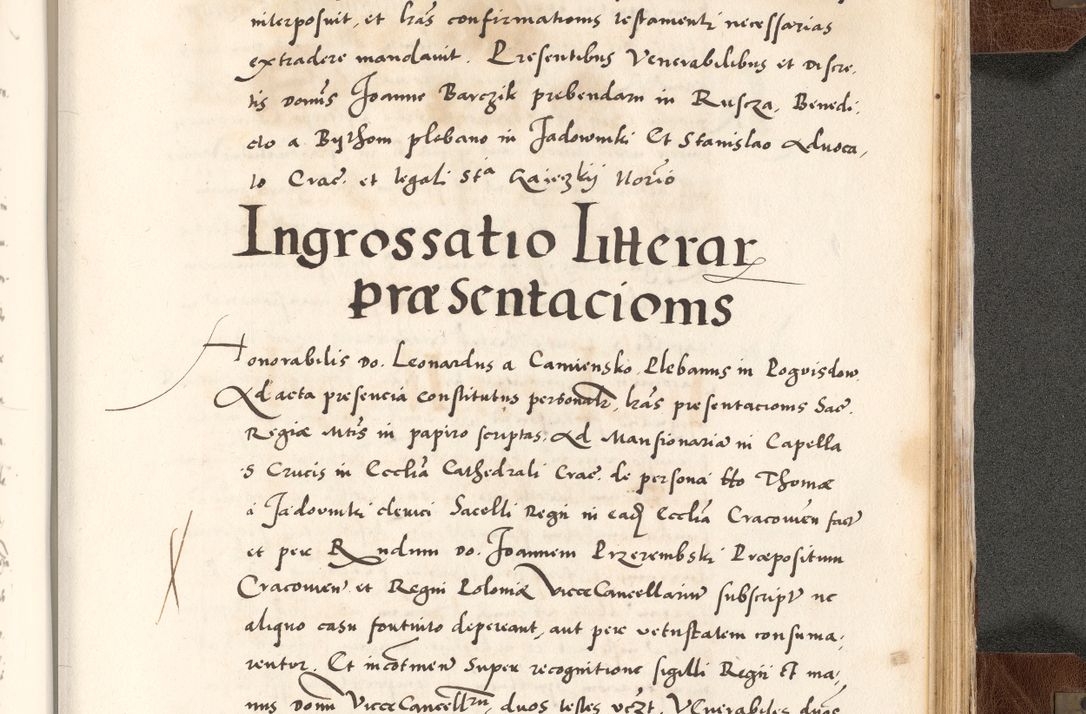 interposuit, et lras confirmationis testamenti necessarias
extradere mandauit. Presentibus Venerabilibus et Discre,
tis Domis Joanne Barczik prebendario in Ruscza, Benedi,
cto a Bythom plebano in Jadowniki Et Stanislao Aduoca,
to Crac. et legali Sta Norio
Ingrossatio Litterar
præsentacionis
Honorabilis Do. Leonardus a Camiensko Plebanus in Rogvisdow,
Ad acta presencia constitutus personalr, lras presentacionis Sac.
Regiæ Mtis in papiro scriptas, Ad Mansionariā in Capella
S Crucis in Ecclia Cathedrali Crac. de persona tto Thomæ
a Jadowniki clerici Sacelli Regii in ead Ecclia Cracovien fact
et per Rndum Do. Joannem Przerembski Præpositum
Cracovien et Regni Poloniæ ViceCancellariū subscript ne
aliquo casu fortuito depereant, aut per vetustatem consuma,
rentur. Et incōtinen super recognitione sigilli Regii Et ma,
nus Domi ViceCancellrii, duos testes vczt. Venerabiles duos